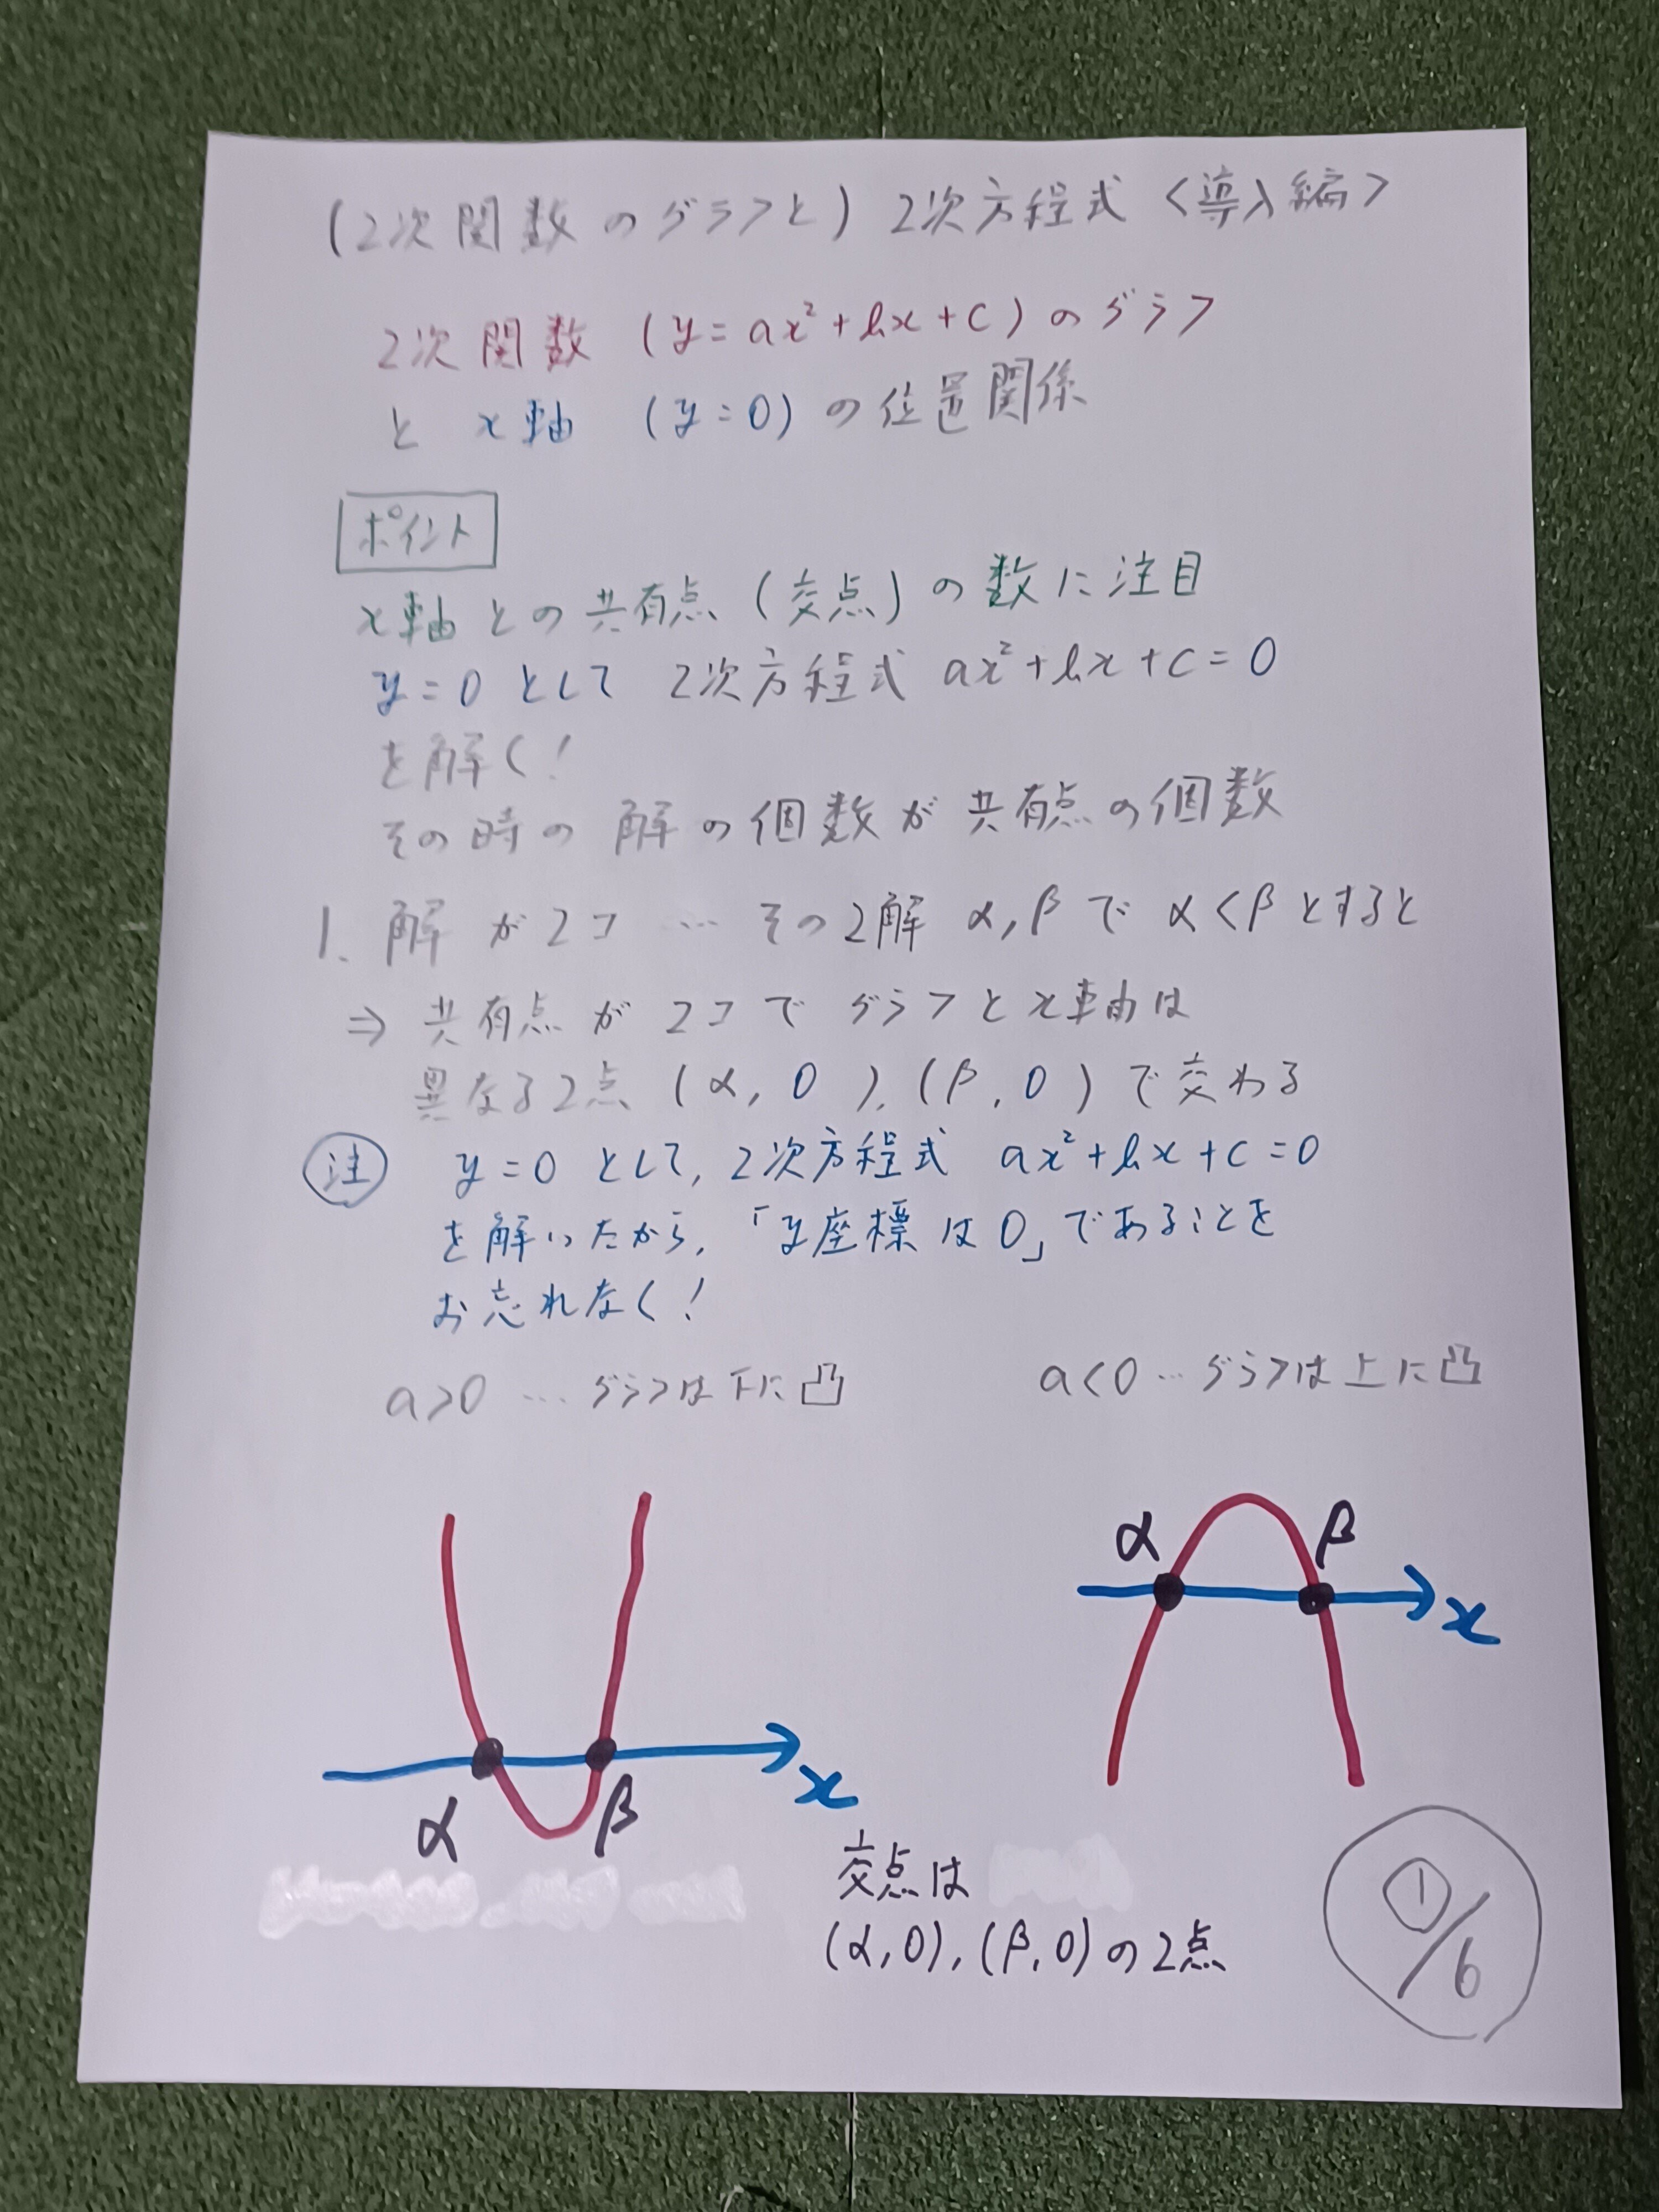 (2次関数のグラフと) 2次方程式 <導入編>
2次関数 (y=ax²+bx+c) のグラフ
と x軸 (y=0) の位置関係
ポイント
x軸との共有点 (交点) の数に注目
y=0 として 2次方程式 ax²+bx+c=0
を解く!
その時の解の個数が共有点の個数
1. 解が2コ … その2解 α, β で α<β とすると
⇒ 共有点が2コで グラフと x軸は
異なる2点 (α, 0), (β, 0) で交わる
注 y=0 として, 2次方程式 ax²+bx+c=0
を解いたから, 「y座標は0」であることを
お忘れなく!
a>0 … グラフは下に凸
a<0 … グラフは上に凸
α β x
α β x
交点は
(α, 0), (β, 0) の2点
①/6